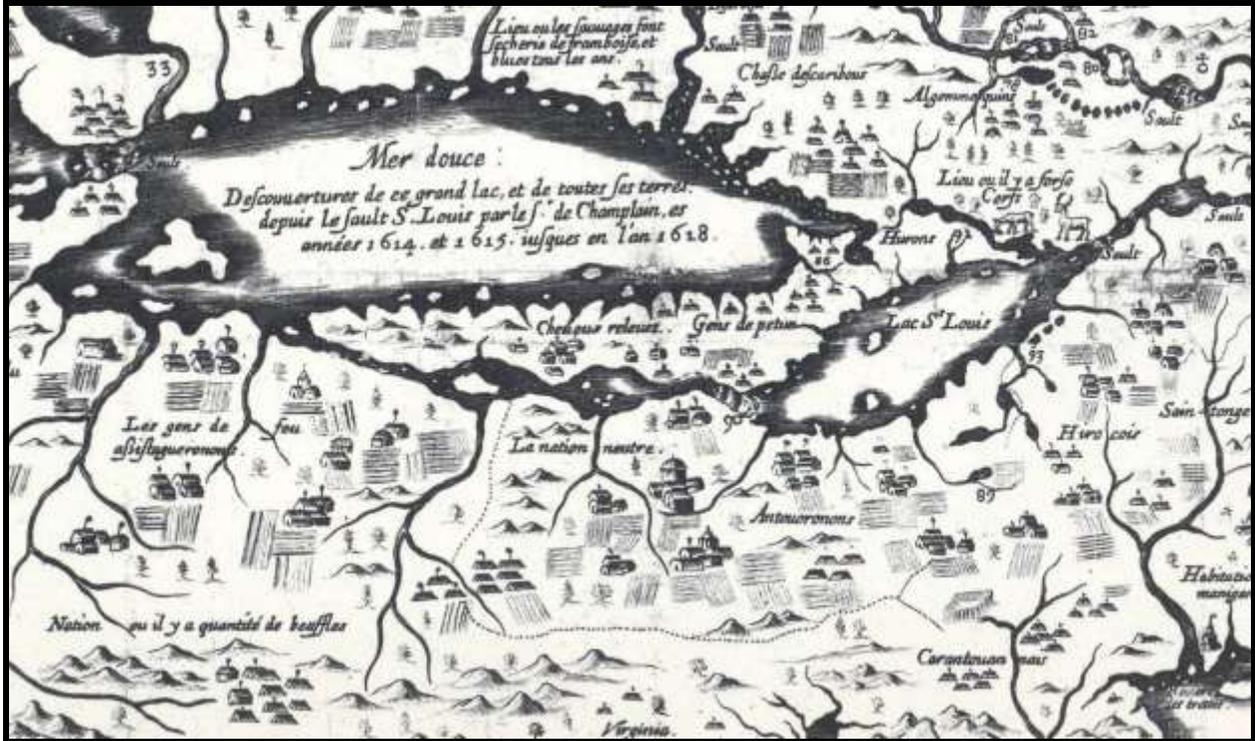 Lieu ou les sauuages font
secherie de framboise, et
blues tous les ans.
33
Sault
Chasse des caribous
81
Sault
82
80
Algommequins
Sault
Sault
Mer douce :
Descouuertures de ce grand lac, et de toutes ses terres.
depuis le sault S. Louis par le s.r de Champlain, es
années 1614. et 1615. iusques en l'an 1618.
Lieu ou il y a force
Cerfs
Sault
Hurons
Sault
86
Cheueux releuez.
Gens de petun
Lac St Louis
93
Les gens de feu
assistagueronons.
La nation neutre.
90
Hirocois
89
Antouoronons
Habitatio
Nation ou il y a quantité de beuffles
Carantouannais
Virginia.